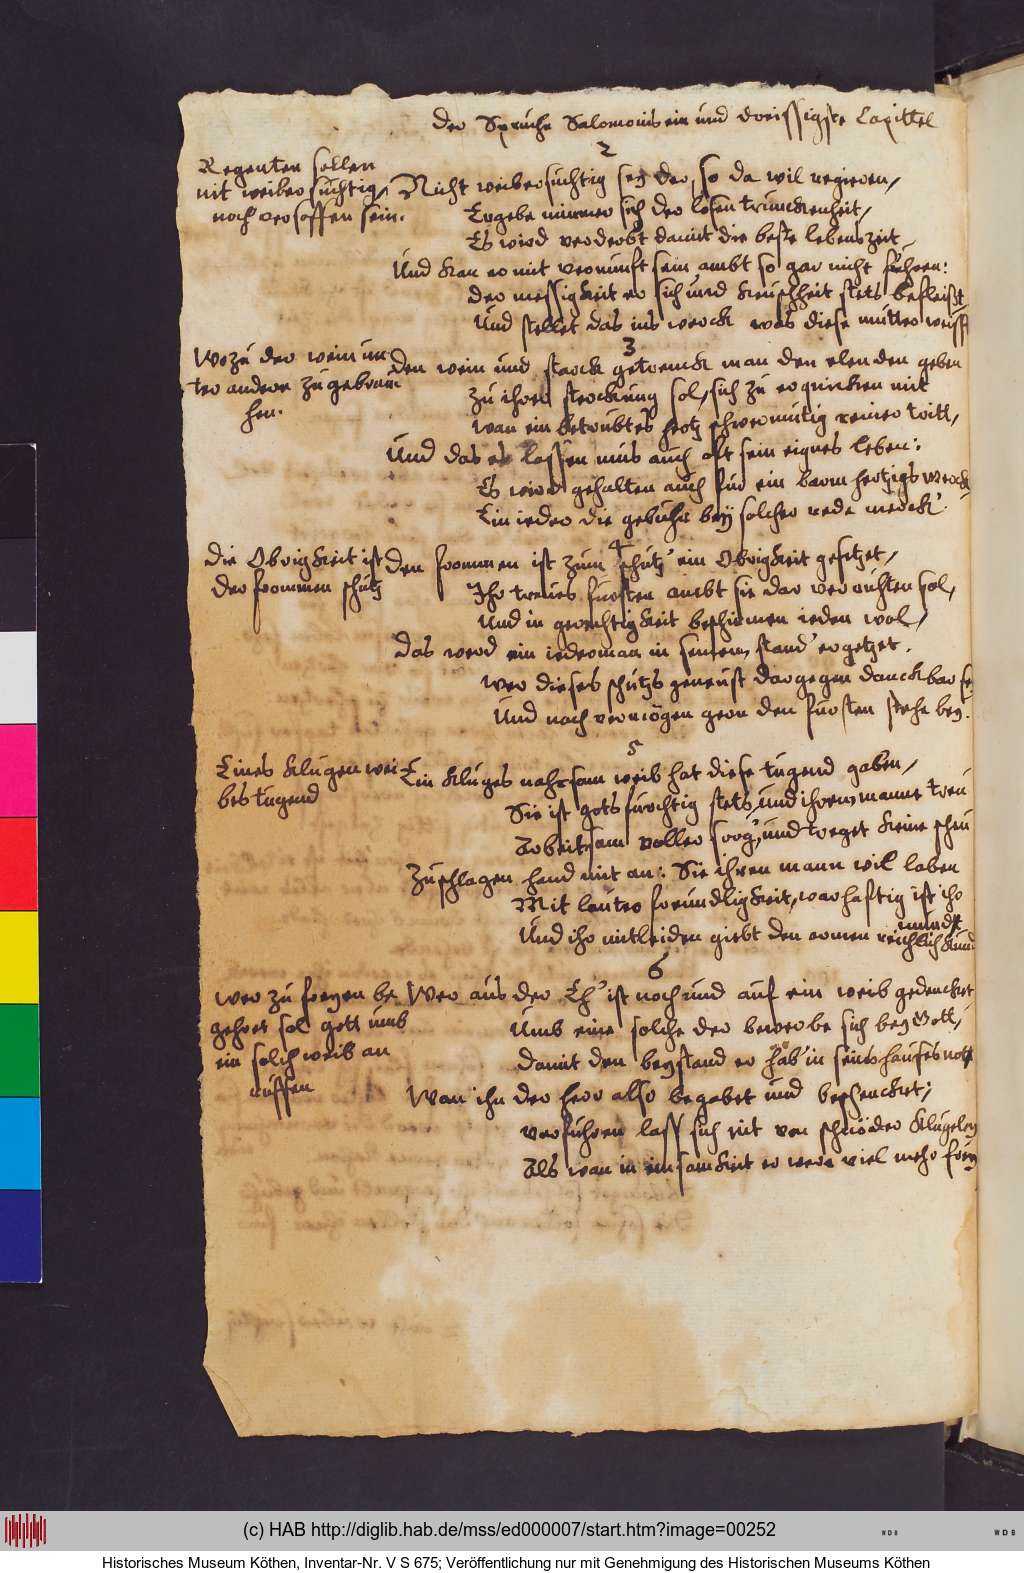 der Spruche Salomonis ein und dreissigste Capittel
2
Regenten sollen
nit weibersuchtig,
noch versoffen sein.
Nicht weibersuchtig sey der, so da wil regieren,
Ergebe nimmer sich der losen trunckenheit,
Es wird verderbt damit die beste lebenszeit,
Und kan er mit vernunft sein ambt so gar nicht führen:
der messigkeit er sich und keuschheit stets befleißt
Und stellet das ins werck was diese mutter weist
3
Wozu der wein un
ter andern zu gebrau
hen.
den wein und starck getrenck man den elenden geben
zu ihrer sterckung sol, sich zu erquicken mit
wan ein betrubtes hertz schwermutig reiner tritt,
Und das es lassen mus auch oft sein eignes leben:
Es wird gehalten auch fur ein barmhertzigs werck
Ein ieder die gebuhr bey solcher rede merck.
4
die Obrigkeit ist
der frommen schutz
den frommen ist zum schutz ein Obrigkeit gesetzet,
Ihr treues fursten ambt sie dar verrichten sol,
Und in gerechtigkeit beschirmen ieden wol,
das werd ein iederman in seinem stand ergetzet.
wer dieses schutzs geneust dargegen danckbar sey
Und nach vermögen gern den fursten stehe bey.
5
Eines klugen wei
bes tugend
Ein kluges nahrsam weib hat diese tugend gaben,
Sie ist gotsfurchtig stets, und ihrem manne treu
Arbeitsam voller sorg', und treget keine scheu
Zuschlagen hand mit an: Sie ihren mann wil laben
Mit lauter freundligkeit, warhaftig ist ihr
mund
Und ihr mitleiden giebt den armen reichlich kund
6
wer zu freyen be
gehret sol gott umb
ein solch weib an
ruffen
Wer aus der Eh' ist noch und auf ein weib gedencket
Umb eine solche der bewerbe sich bey Gott,
damit den beystand er hab' in seins hauses noht
Wan ihn der herr also begabet und beschencket;
verfuhren lass sich nit von schnöder klugeley
Als wan in einsamkeit er were viel mehr frey
(c) HAB http://diglib.hab.de/mss/ed000007/start.htm?image=00252
WDB
WDB
Historisches Museum Köthen, Inventar-Nr. V S 675; Veröffentlichung nur mit Genehmigung des Historischen Museums Köthen